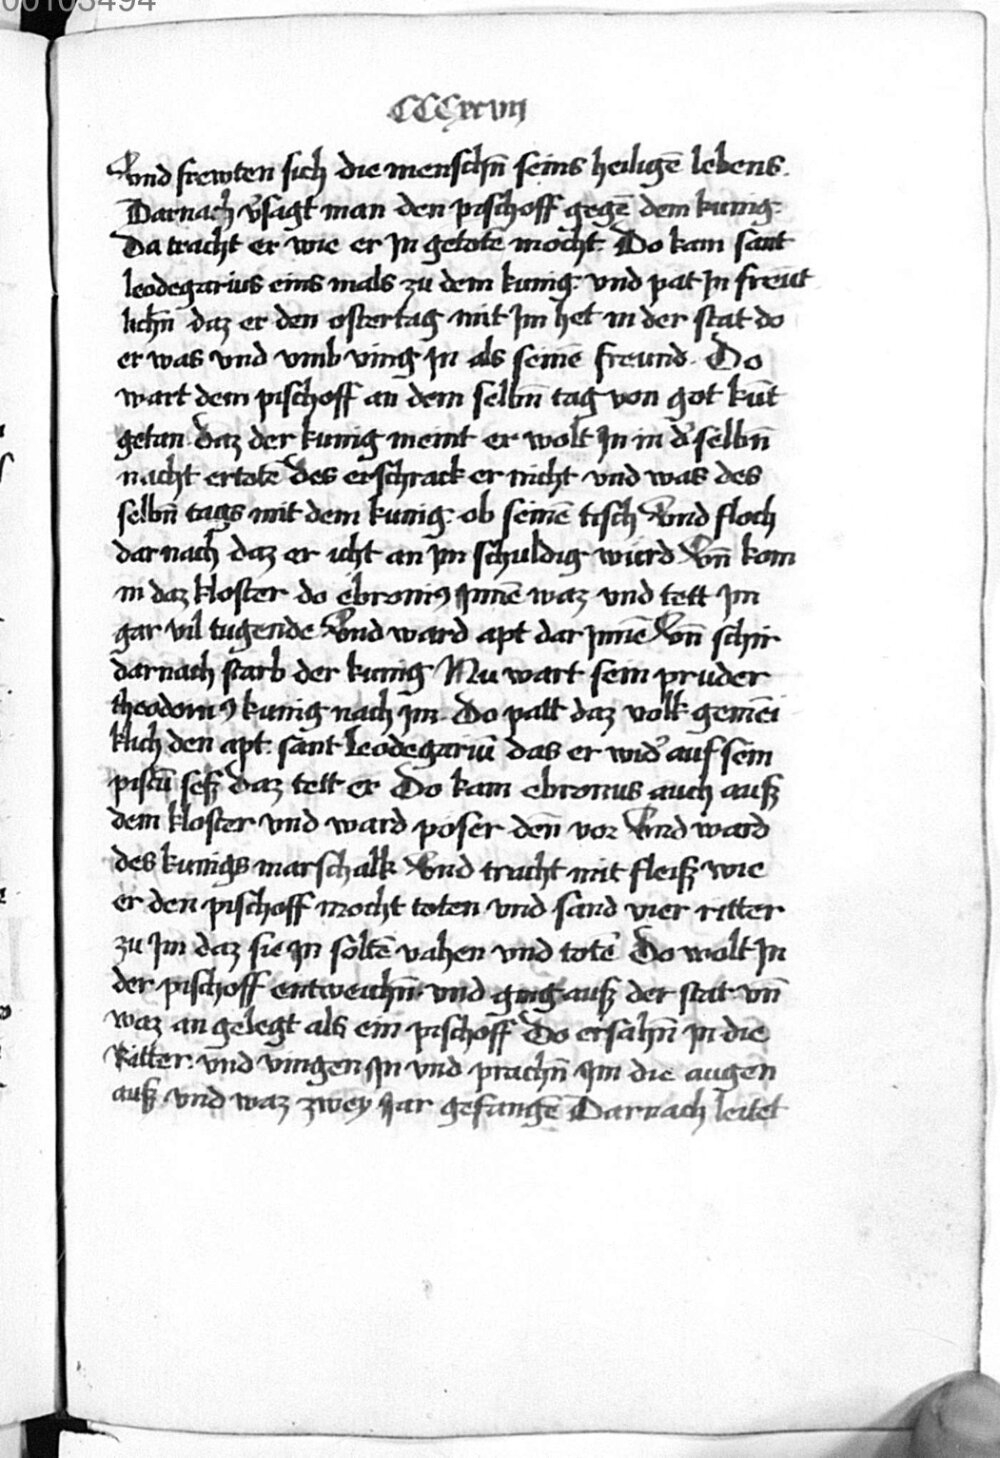 00103494
CCCxxvııȷ
Vnd frewten sich die menschn̄ seins heiligē lebens.
Darnach v̓sagt man den pischoff gegē dem kunig.
Da tracht er wie er Jn getotē mocht. Do kam sant
leodegarius eins mals zu dem kunig. vnd pat Jn freūt
lichn̄ daz er den ostertag mit Jm het in der stat do
er was vnd vmb ving Jn als seinē freund. Do
wart dem pischoff an dem selbn̄ tag von got kūt
getan daz der kunig meint er wolt Jn in d̓ selbn̄
nacht ertotē des erschrack er nicht vnd was des
selbn̄ tags mit dem kunig ob seinē tisch Vnd floch
darnach daz er icht an Jm schuldig wurd Vn̄ kom
in daz kloster do ebroniꝰ Jnnē waz vnd tett Jm
gar vil tugende Vnd ward apt dar Jnnē Vn̄ schir
darnach starb der kunig Nu wart sein pruder
theodoricꝰ kunig nach Jm. Do patt daz volk gemēi
klich den apt sant leodegariū das er wid̓ auf sein
pistū seß daz tett er Do kam ebronus auch auß
dem kloster vnd ward poser den̄ vor Vnd ward
des kunigs marschalk Vnd tracht mit fleiß wie
er den pischoff mocht toten vnd sand vier ritter
zu Jm daz sie Jn soltē vahen vnd totē Do wolt Jn
der pischoff entweichn̄ vnd ging auß der stat vn̄
waz an gelegt als ein pischoff Do ersahn̄ Jn die
Ritter. vnd vingen Jn vnd prachn̄ Jm die augen
auß vnd waz zwey Jar gefangē Darnach leitet